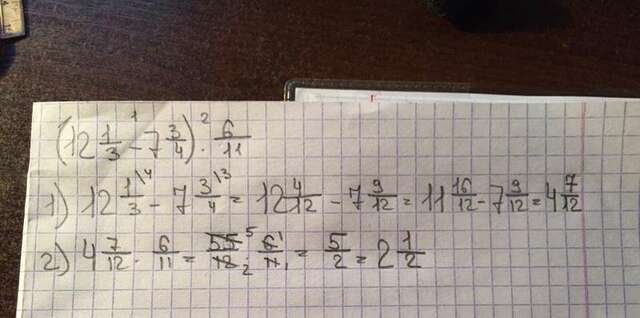 (12 1/3 -¹ 7 3/4) ·² 6/11
1) 12 1/3\4 - 7 3/4\3 = 12 4/12 - 7 9/12 = 11 16/12 - 7 9/12 = 4 7/12
2) 4 7/12 · 6/11 = 55⁵/12₂ · 6¹/11₁ = 5/2 = 2 1/2